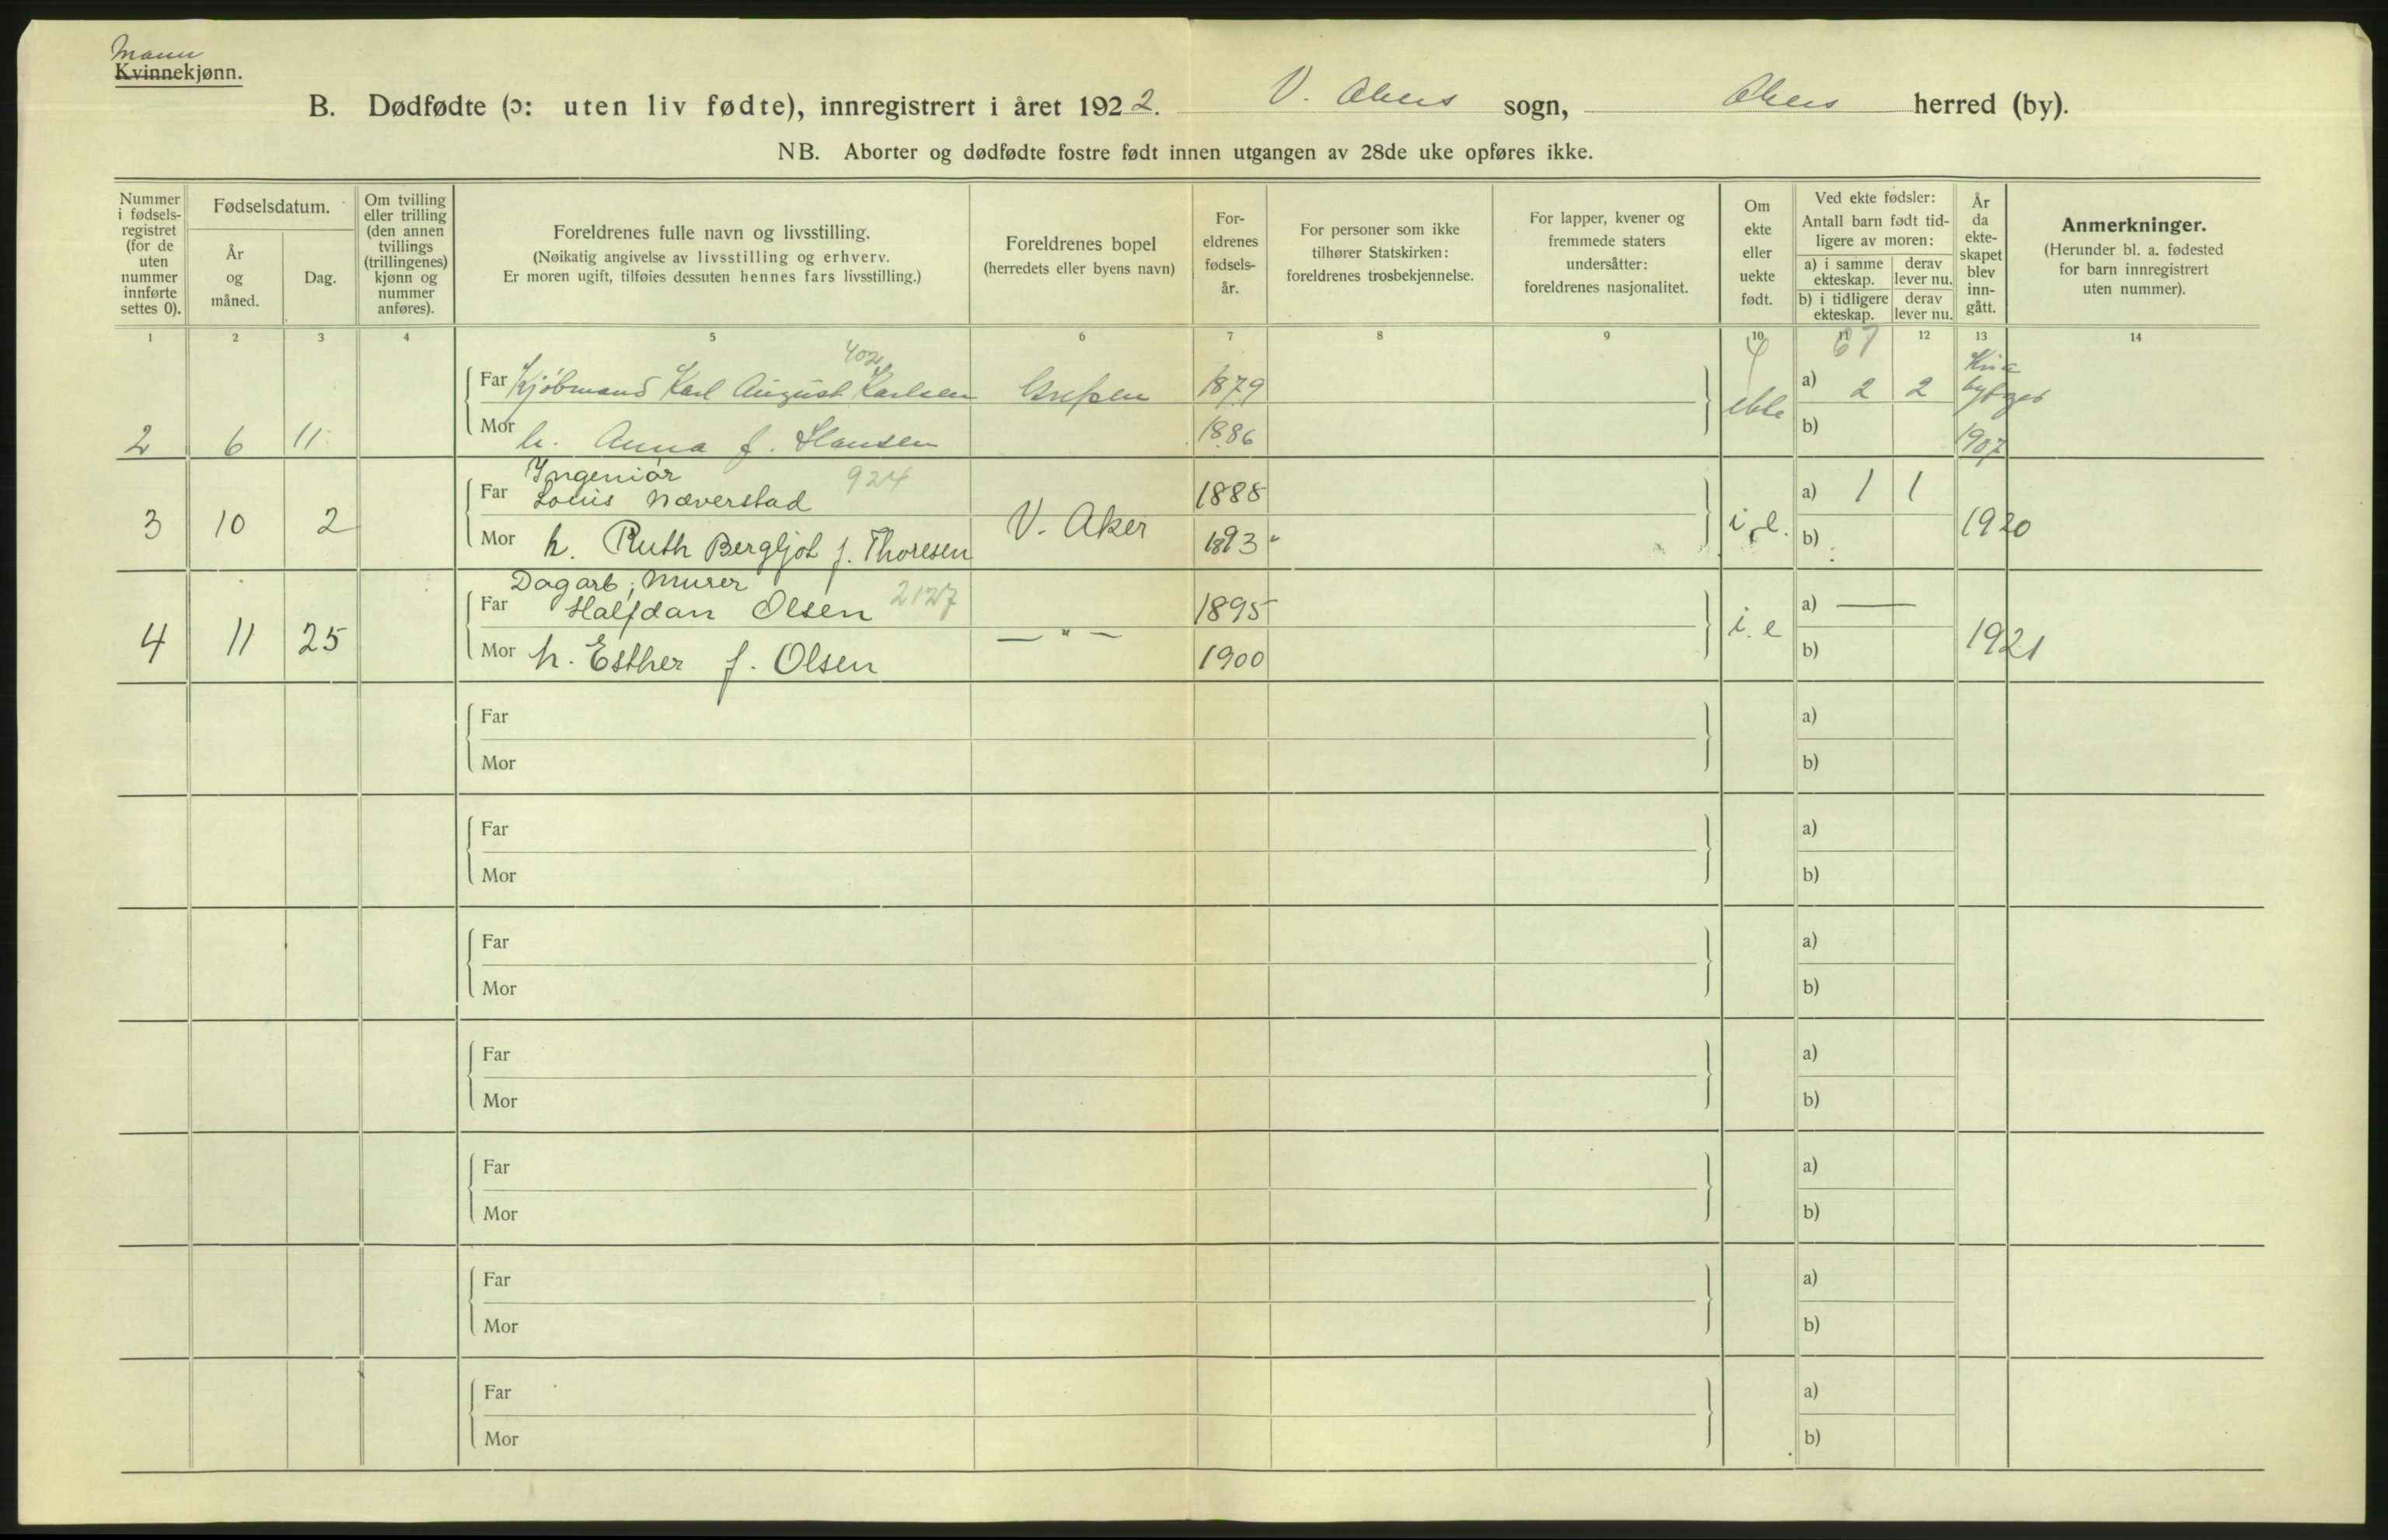 Mann
Kvinnekjønn.
B. Dødfødte (ɔ: uten liv fødte), innregistrert i året 1922. V. Akers sogn, Akers herred (by).
NB. Aborter og dødfødte fostre født innen utgangen av 28de uke opføres ikke.
Nummer i fødsels- registret (for de uten nummer innførte settes 0).
Fødselsdatum.
År og måned.
Dag.
Om tvilling eller trilling (den annen tvillings (trillingenes) kjønn og nummer anføres).
Foreldrenes fulle navn og livsstilling.
(Nøikatig angivelse av livsstilling og erhverv.
Er moren ugift, tilføies dessuten hennes fars livsstilling.)
Foreldrenes bopel
(herredets eller byens navn)
For- eldrenes fødsels- år.
For personer som ikke tilhører Statskirken: foreldrenes trosbekjennelse.
For lapper, kvener og fremmede staters undersåtter: foreldrenes nasjonalitet.
Om ekte eller uekte født.
Ved ekte fødsler:
Antall barn født tid- ligere av moren:
a) i samme ekteskap. derav lever nu.
b) i tidligere ekteskap. derav lever nu.
År da ekte- skapet blev inn- gått.
Anmerkninger.
(Herunder bl. a. fødested for barn innregistrert uten nummer).
1 2 3 4 5 6 7 8 9 10 11 12 13 14
402 4 67
Far Kjøbmand Karl August Karlsen Grefsen 1879 a) 2 2 Kria
2 6 11 ekte bytget 1907
Mor h. Anna f. Hansen 1886 b)
Ingeniør 924
Far Louis Næverstad 1888 a) 1 1
3 10 2 V. Aker i. e. 1920
Mor h. Ruth Bergljot f. Thoresen 1893 b)
Dagarb; Murer 2127
Far Halfdan Olsen 1895 a) —
4 11 25 — " — i. e 1921
Mor h. Esther f. Olsen 1900 b)
Far a)
Mor b)
Far a)
Mor b)
Far a)
Mor b)
Far a)
Mor b)
Far a)
Mor b)
Far a)
Mor b)
Far a)
Mor b)